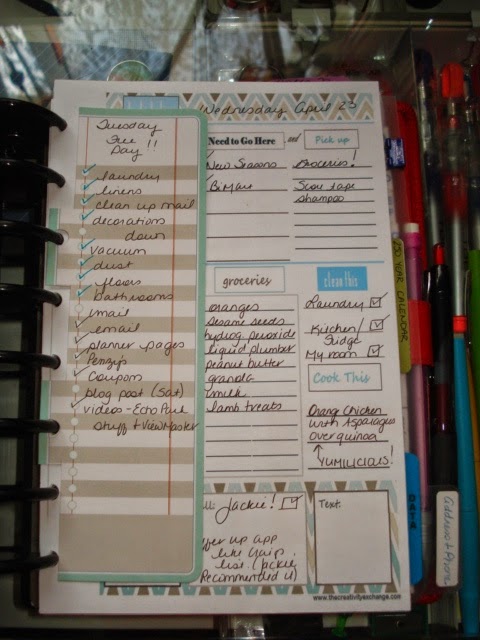 Wednesday April 23
Tuesday
Free
Day!!
laundry
linens
clean up mail
decorations
down
vacuum
dust
floors
bathrooms
mail
email
planner pages
Penzys
Coupon
blog post (Sat)
videos - Echo Park
stuff + ViewMaster
Need to Go Here
and
Pick up
New Seasons
Groceries!
BiMart
Scow tape
shampoo
groceries
oranges
sesame seeds
hydrog peroxide
liquid plumber
peanut butter
granola
milk
lamb treats
clean this
Laundry
Kitchen/
Fridge
My room
Cook This
Orang Chicken
with Asparagus
over quinoa
YUMILICIOUS!
Jackie!
up app
like
list. (Jackie
Recommended it)
Text:
www.thecreativityexchange.com
250 YEAR CALENDAR
DATA
Address + Phone